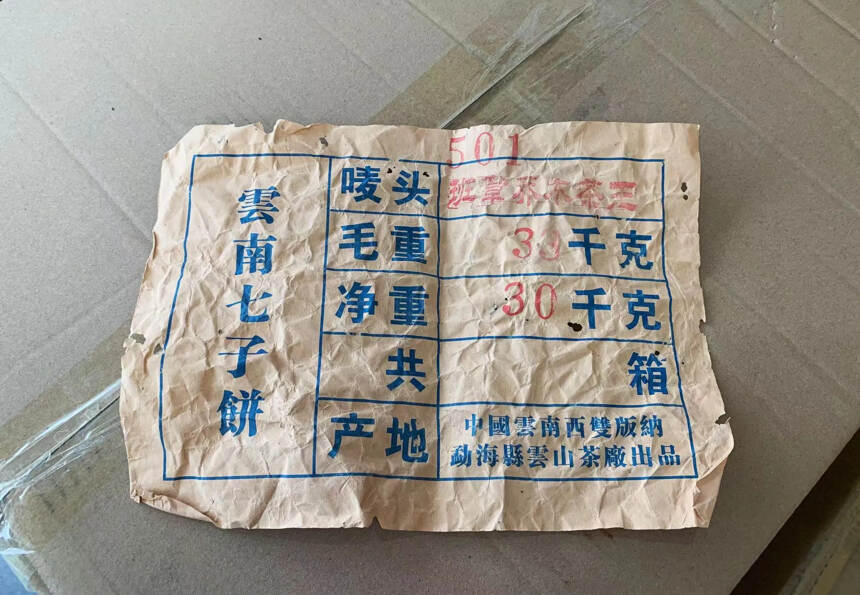 雲南七子餅
501
唛头
毛重 30千克
净重 30千克
共 箱
产地 中國雲南西雙版納
勐海縣雲山茶廠出品